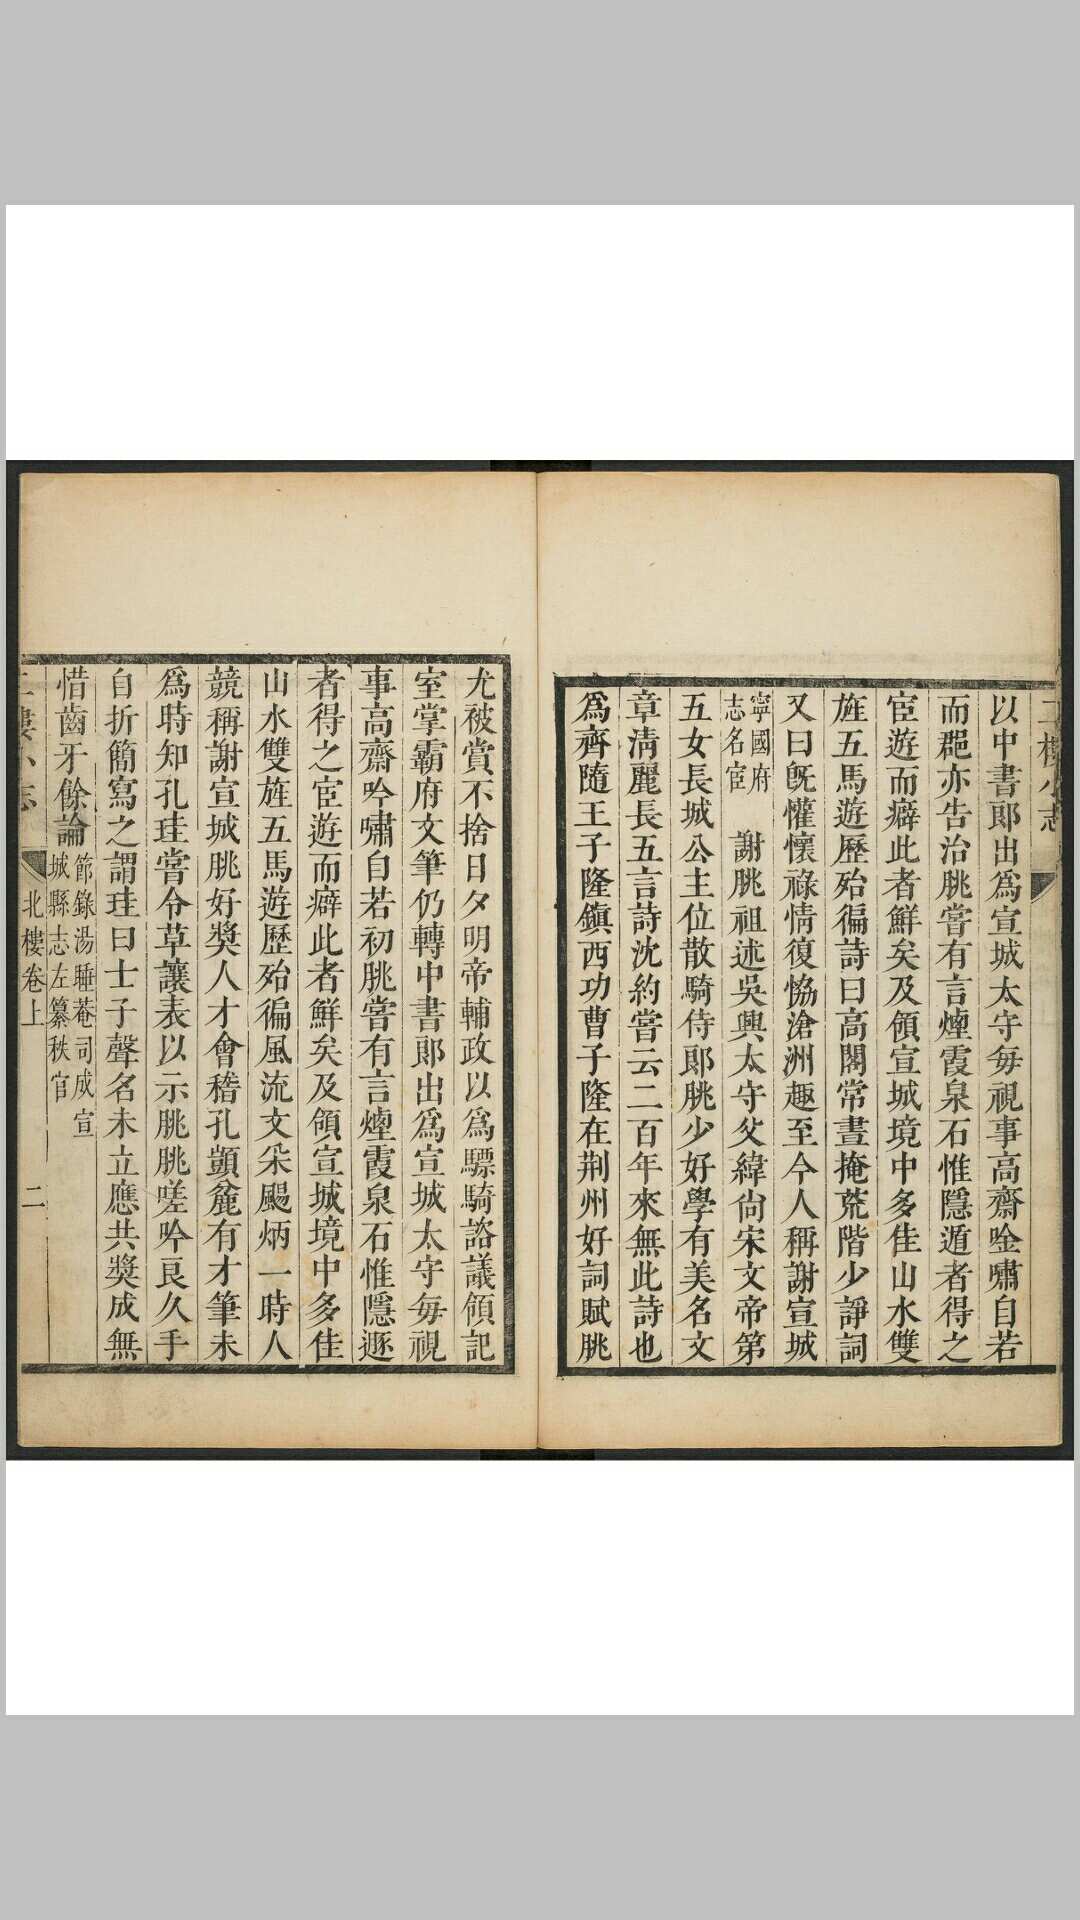 二樓小志
以中書郎出爲宣城太守每視事高齋唫嘯自若
而郡亦告治朓嘗有言煙霞泉石惟隱遁者得之
宦遊而癖此者鮮矣及領宣城境中多佳山水雙
旌五馬遊歷殆徧詩曰高閣常晝掩荒階少諍詞
又曰旣懽懷祿情復恊滄洲趣至今人稱謝宣城
寧國府
志名宦
謝朓祖述吳興太守父緯尙宋文帝第
五女長城公主位散騎侍郎朓少好學有美名文
章淸麗長五言詩沈約嘗云二百年來無此詩也
爲齊隨王子隆鎮西功曹子隆在荆州好詞賦朓
尤被賞不捨日夕明帝輔政以爲驃騎諮議領記
室掌霸府文筆仍轉中書郎出爲宣城太守每視
事高齋吟嘯自若初朓嘗有言煙霞泉石惟隱遯
者得之宦遊而癖此者鮮矣及領宣城境中多佳
山水雙旌五馬遊歷殆徧風流文朵颺炳一時人
競稱謝宣城朓好獎人才會稽孔顗麄有才筆未
爲時知孔珪嘗令草讓表以示朓朓嗟吟良久手
自折簡寫之謂珪曰士子聲名未立應共獎成無
惜齒牙餘論
節錄湯睡菴司成宣
城縣志左纂秩官
二樓小志
北樓卷上
二